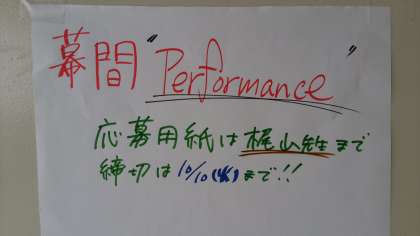 幕間"Performance"
応募用紙は梶山先生まで
締切は10/10(火)まで!!